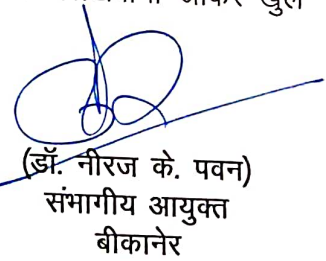 आकर खुले
(डॉ. नीरज के. पवन)
संभागीय आयुक्त
बीकानेर